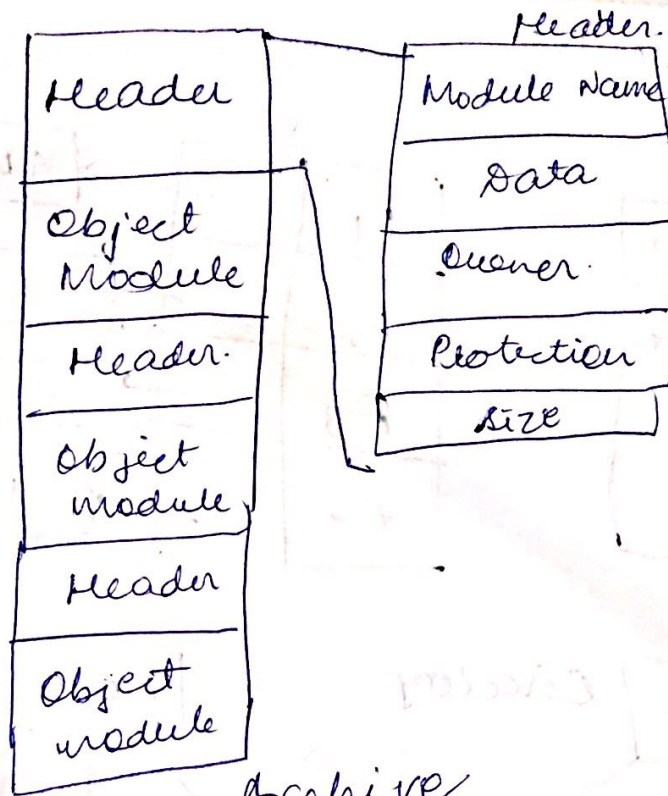 Header
Object
Module
Header.
Object
module
Header
Object
module
Header.
Module Name
Data
Owner.
Protection
size
Archive